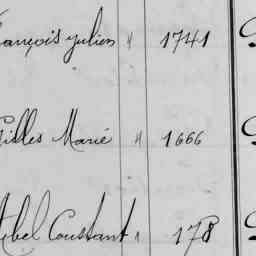 ançois Julien " 1741
illes Marié " 1666
Abel Coustant " 178